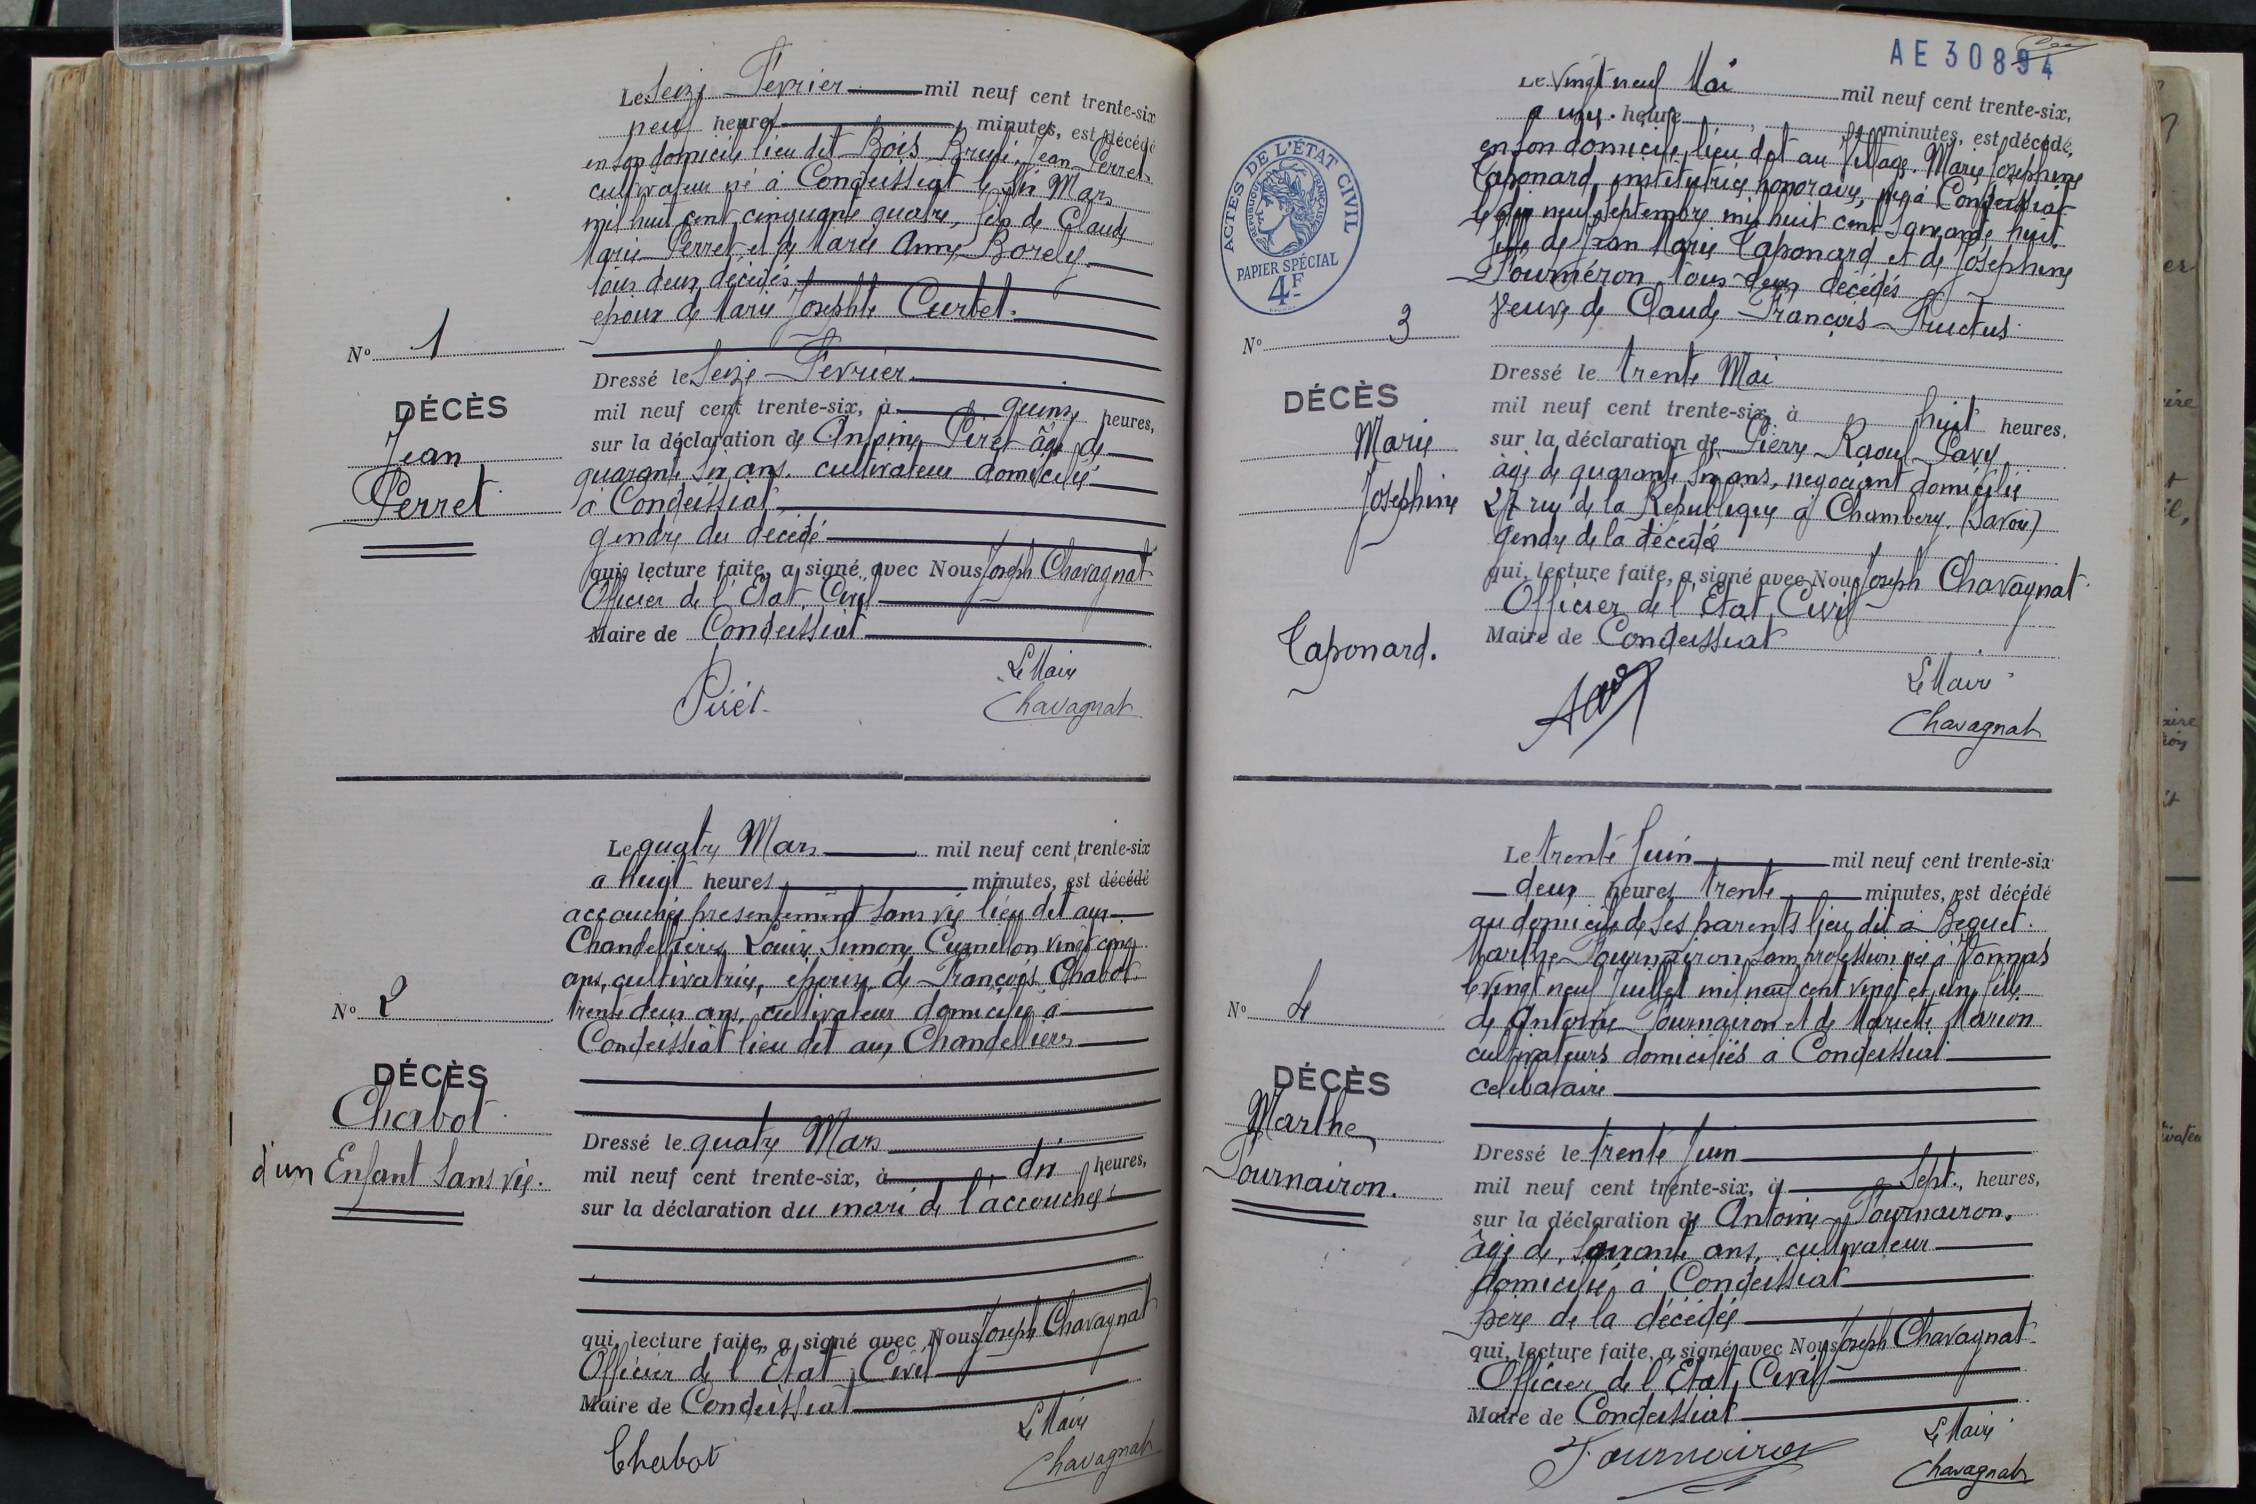 Le Seize Février mil neuf cent trente-six
neuf heures minutes, est décédé
en son domicile lieu dit Bois Brulé, Jean Perret
cultivateur né à Condeissiat le six Mars
mil huit cent cinquante quatre, fils de Claude
Marie Perret et de Marie Anne Borely
tous deux décédés
époux de Marie Josephte Curtet.
N° 1
DÉCÈS
Jean
Perret
Dressé le Seize Février
mil neuf cent trente-six, à quinze heures,
sur la déclaration de Antoine Piret âgé de
quarante six ans, cultivateur domicilié
à Condeissiat
gendre du décédé
qui, lecture faite, a signé avec Nous Joseph Chavagnat
Officier de l'Etat Civil
Maire de Condeissiat
Le Maire
Piret
Chavagnat
Le quatre Mars mil neuf cent trente-six
a huit heures minutes, est décédé
accouchée présentement sans vie lieu dit aux
Chandelliers Louise Simone Curnillon vingt cinq
ans, cultivatrice, épouse de François Chabot
trente deux ans, cultivateur domicilié à
Condeissiat lieu dit aux Chandelliers
N° 2
DÉCÈS
Chabot
d'un Enfant sans vie.
Dressé le quatre Mars
mil neuf cent trente-six, à dix heures,
sur la déclaration du mari de l'accouchée
qui, lecture faite, a signé avec Nous Joseph Chavagnat
Officier de l'Etat Civil
Maire de Condeissiat
Le Maire
Chabot
Chavagnat
AE 30894
Le Vingt neuf Mai mil neuf cent trente-six,
a une heure minutes, est décédé,
en son domicile, lieu dit au Village Marie Josephine
Taponard, institutrice honoraire, née à Condeissiat
le dix neuf septembre mil huit cent soixante huit,
fille de Jean Marie Taponard et de Josephine
Fournéron tous deux décédés
Veuve de Claude François Fructus
ACTES DE L'ÉTAT CIVIL
RÉPUBLIQUE FRANÇAISE
PAPIER SPÉCIAL
4F
N° 3
DÉCÈS
Marie
Josephine
Taponard.
Dressé le trente Mai
mil neuf cent trente-six, à huit heures,
sur la déclaration de Pierre Raoul Pavy
âgé de quarante six ans, négociant domicilié
27 rue de la République à Chambery (Savoie)
gendre de la décédée
qui, lecture faite, a signé avec Nous Joseph Chavagnat
Officier de l'Etat Civil
Maire de Condeissiat
Le Maire
Chavagnat
Le trente Juin mil neuf cent trente-six
deux heures trente minutes, est décédé
au domicile de ses parents lieu dit à Bequet
Marthe Fournairon sans profession née à Vonnas
le vingt neuf Juillet mil neuf cent vingt et un fille
de Antoine Fournairon et de Mariette Marion
cultivateurs domiciliés à Condeissiat
celibataire
N° 4
DÉCÈS
Marthe
Fournairon.
Dressé le trente Juin
mil neuf cent trente-six, à Sept heures,
sur la déclaration de Antoine Fournairon.
âgé de soixante ans, cultivateur
domicilié à Condeissiat
père de la décédée
qui, lecture faite, a signé avec Nous Joseph Chavagnat
Officier de l'Etat Civil
Maire de Condeissiat
Le Maire
Fournairon
Chavagnat